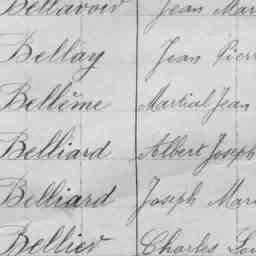 Bellavoir Jean Mar
Bellay Jean Pierr
Bellême Martial Jean
Belliard Albert Joseph
Belliard Joseph Mari
Bellier Charles Lou